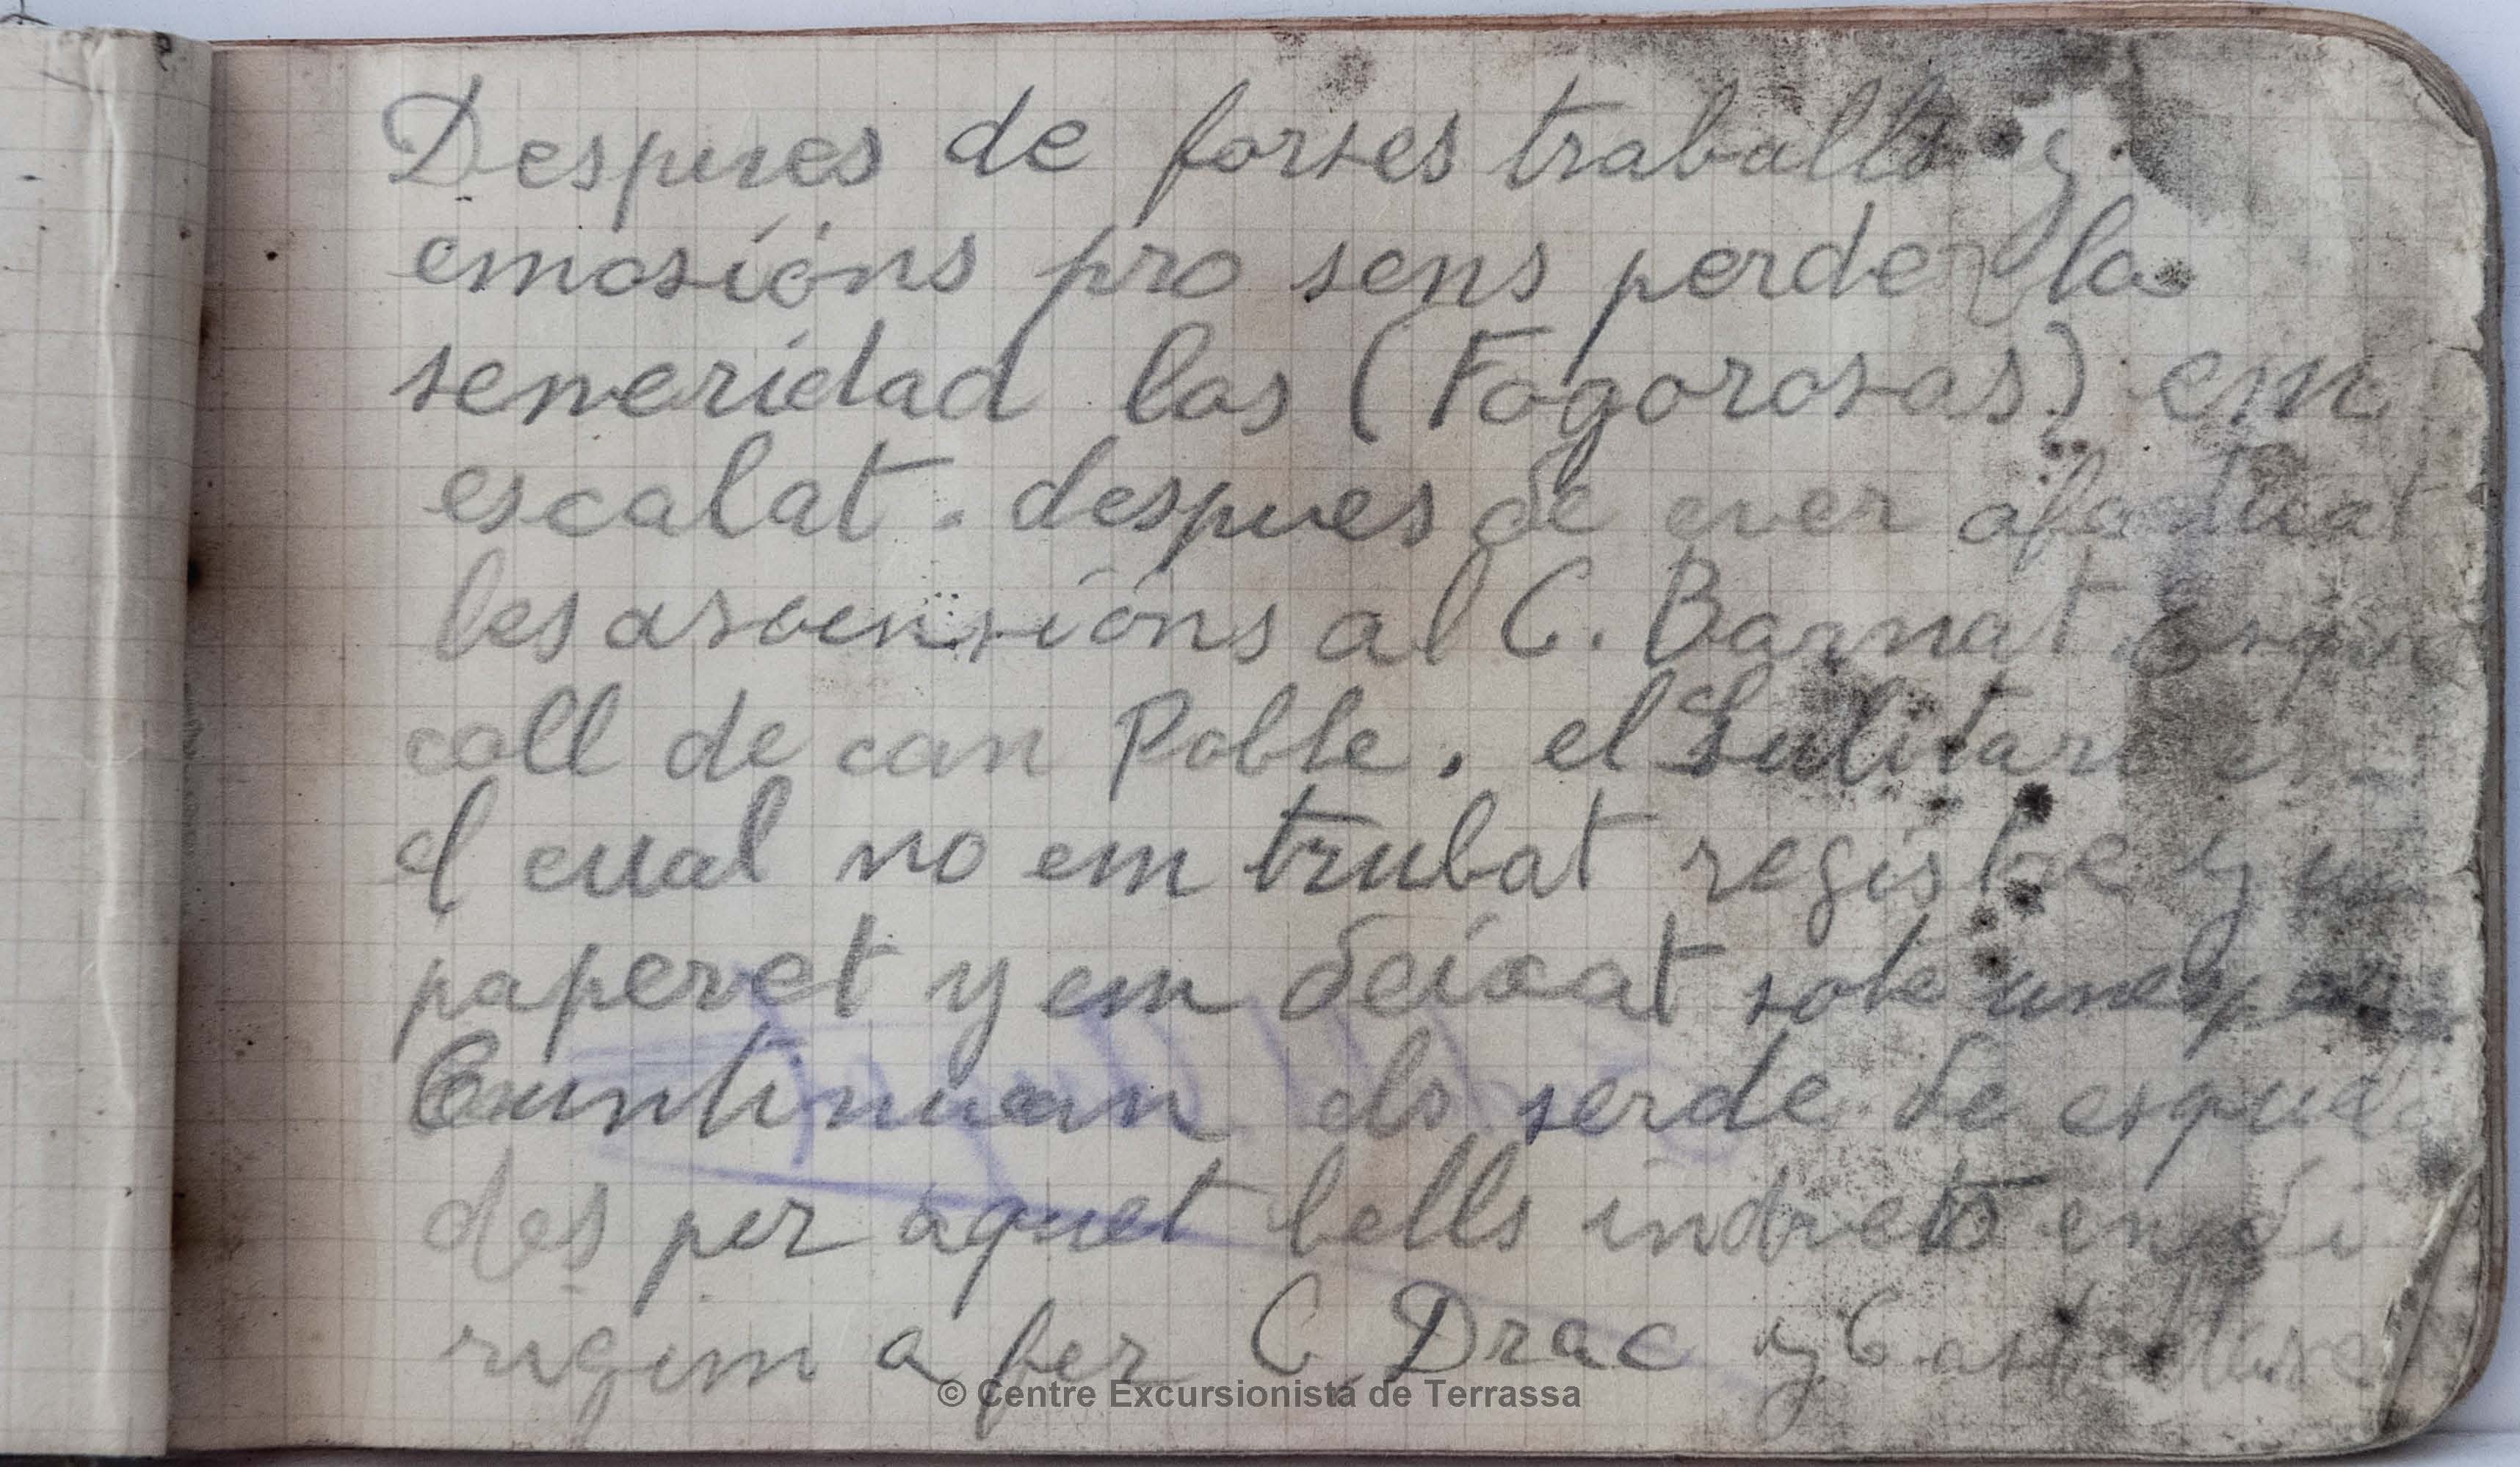 Despues de forses traballs y
emosións pro sens perder la
seneridad las (Fogorosas) em
escalat. despues de aver
les assensións al C. Barnat.
coll de can Poble. el Sulitari en
el cual no em trubat registre y un
paperet y em deixat sota
Cuntinuan els serde de
des per aquet bells indrets en di
rigim a fer C. Drac y
© Centre Excursionista de Terrassa